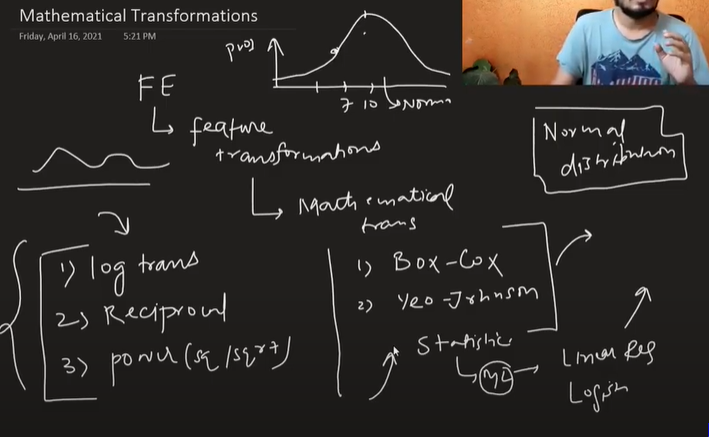 Mathematical Transformations
Friday, April 16, 2021 5:21 PM
prob
7 10 Norm
FE
feature
transformations
Mathematical
trans
Normal
distribution
1) log trans
2) Reciprocal
3) power (sq/sqrt)
1) Box-Cox
2) Yeo-Johnson
Statistic
ML
Linear Reg
Logis